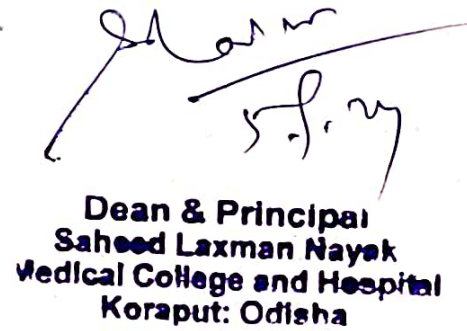 Dean & Principal
Saheed Laxman Nayak
Medical College and Hospital
Koraput: Odisha